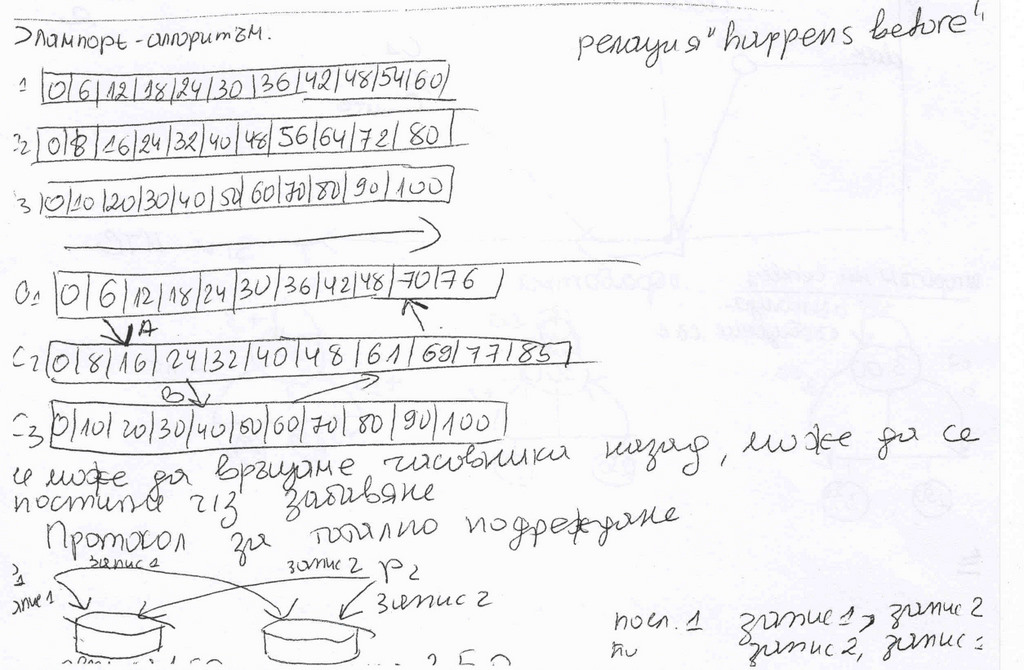 Лампорt-алгоритъм.
релация "happens before"
1 0 6 12 18 24 30 36 42 48 54 60
2 0 8 16 24 32 40 48 56 64 72 80
3 0 10 20 30 40 50 60 70 80 90 100
C1 0 6 12 18 24 30 36 42 48 70 76
A
C2 0 8 16 24 32 40 48 61 69 77 85
B
C3 0 10 20 30 40 50 60 70 80 90 100
не може да връщаме часовника назад, може да се
постигне ч/з забавяне
Протокол за тотално подреждане
запис 1 запис 2 P2
запис 2
посл. 1 запис 1, запис 2
запис 2, запис